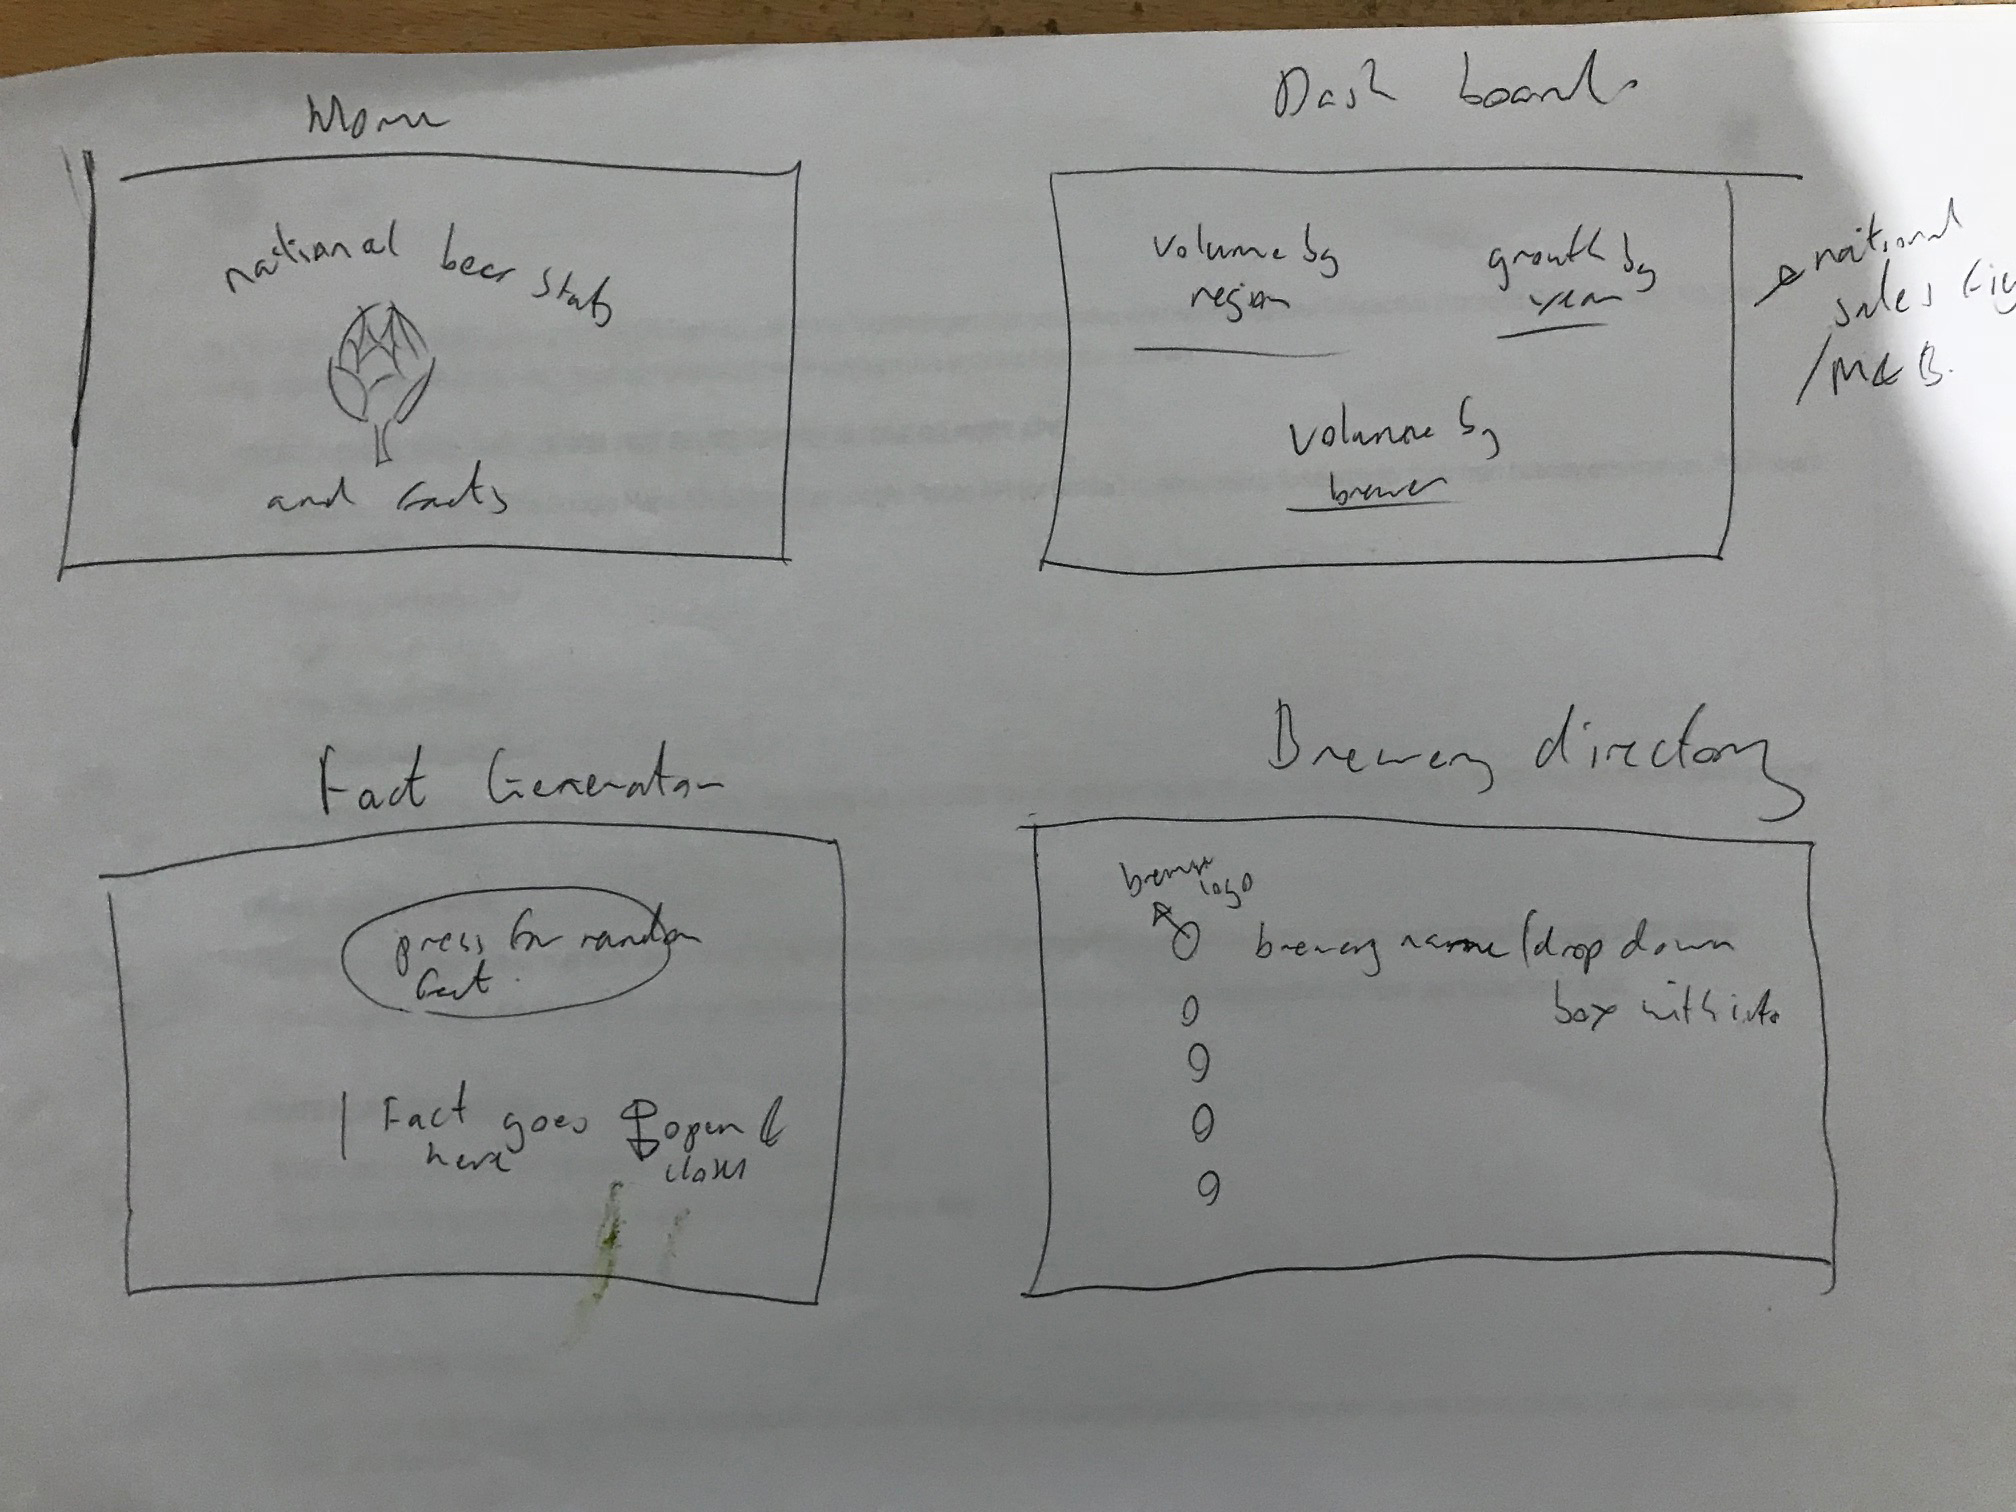 Home
national beer stats
and facts
Dash boards
volume by
region
growth by
year
volume by
brewer
national
sales
/M&B.
Fact Generator
press for random
fact.
Fact goes
here
open &
closes
Brewery directory
brewer
logo
brewery name (drop down
box with info